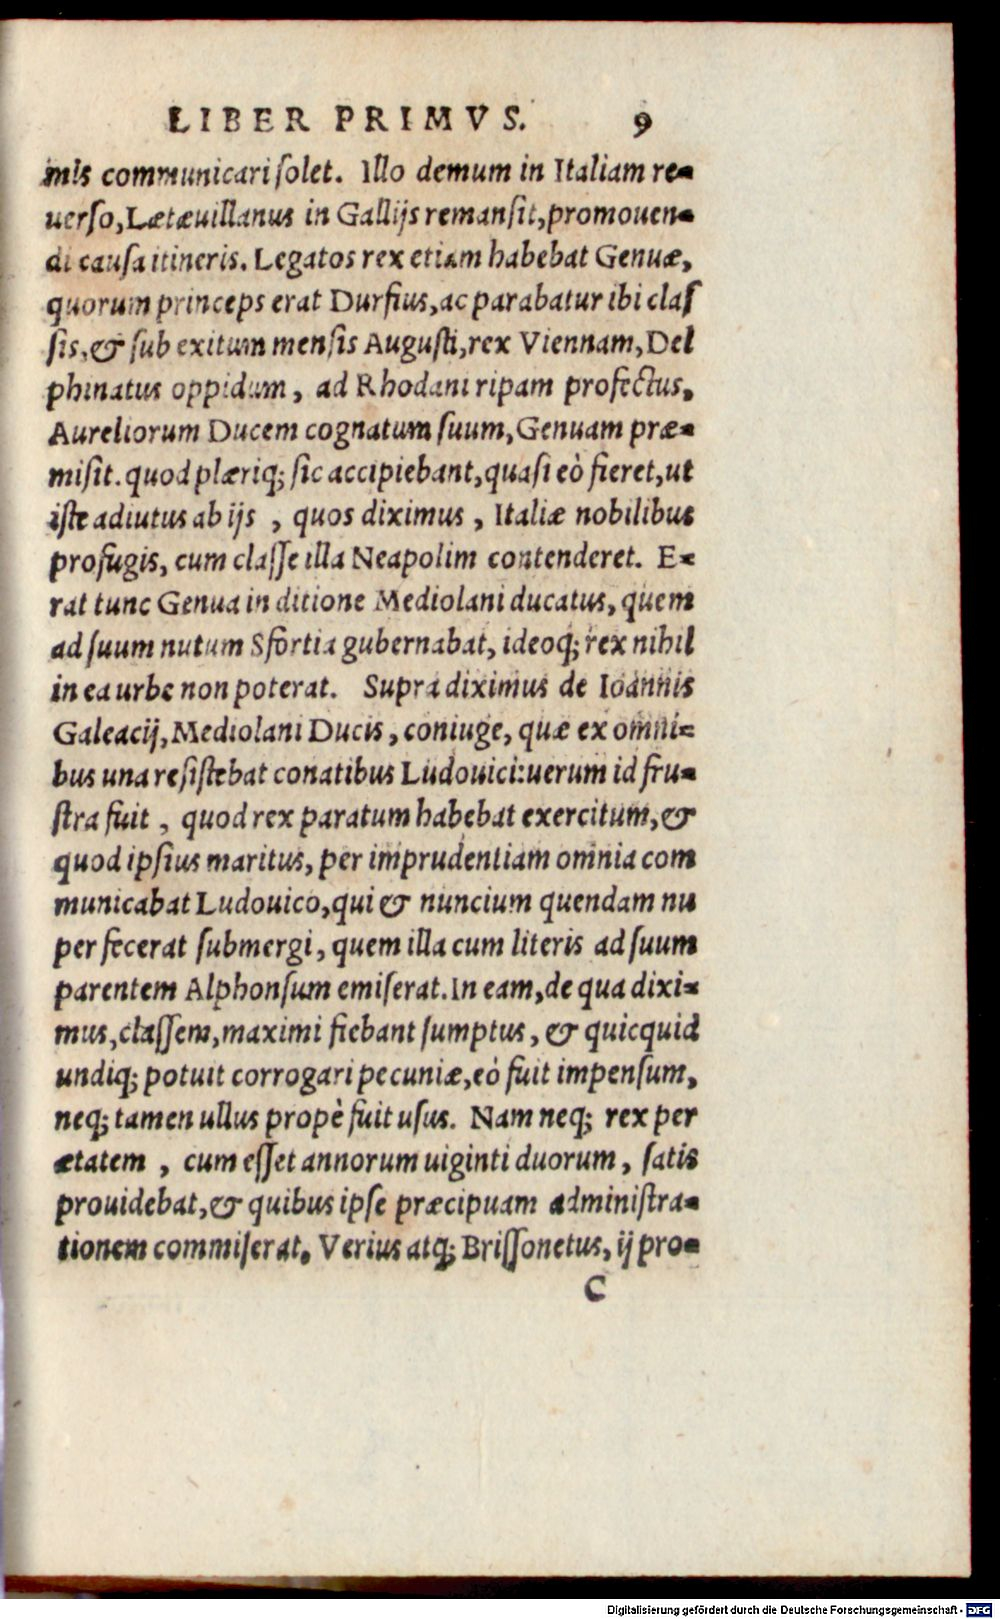 LIBER PRIMVS. 9
mis communicari solet. Illo demum in Italiam re-
uerso, Lætæuillanus in Gallijs remansit, promouen-
di causa itineris. Legatos rex etiam habebat Genuæ,
quorum princeps erat Dursius, ac parabatur ibi clas
sis, & sub exitum mensis Augusti, rex Viennam, Del
phinatus oppidum, ad Rhodani ripam profectus,
Aureliorum Ducem cognatum suum, Genuam præ-
misit. quod plæriq; sic accipiebant, quasi eò fieret, ut
iste adiutus ab ijs, quos diximus, Italiæ nobilibus
profugis, cum classe illa Neapolim contenderet. E-
rat tunc Genua in ditione Mediolani ducatus, quem
ad suum nutum Sfortia gubernabat, ideoq; rex nihil
in ea urbe non poterat. Supra diximus de Ioannis
Galeacij, Mediolani Ducis, coniuge, quæ ex omni-
bus una resistebat conatibus Ludouici: uerum id fru-
stra fuit, quod rex paratum habebat exercitum, &
quod ipsius maritus, per imprudentiam omnia com
municabat Ludouico, qui & nuncium quendam nu
per fecerat submergi, quem illa cum literis ad suum
parentem Alphonsum emiserat. In eam, de qua dixi-
mus, classem, maximi fiebant sumptus, & quicquid
undiq; potuit corrogari pecuniæ, eò fuit impensum,
neq; tamen ullus propè fuit usus. Nam neq; rex per
ætatem, cum esset annorum uiginti duorum, satis
prouidebat, & quibus ipse præcipuam administra-
tionem commiserat, Verius atq; Brissonetus, ij pro-
C
Digitalisierung gefördert durch die Deutsche Forschungsgemeinschaft - DFG